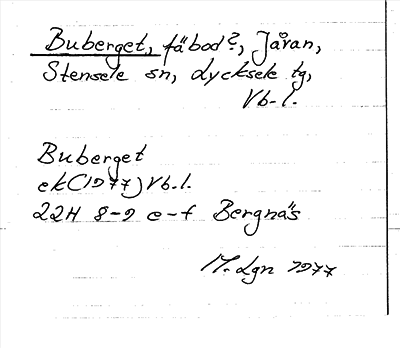 Buberget, fäbod?, Jåran,
Stensele sn, Lycksele tg,
Vb-l.
Buberget
ek(1977) Vb.l.
22H 8-9 e-f Bergnäs
M. Lgn 1977